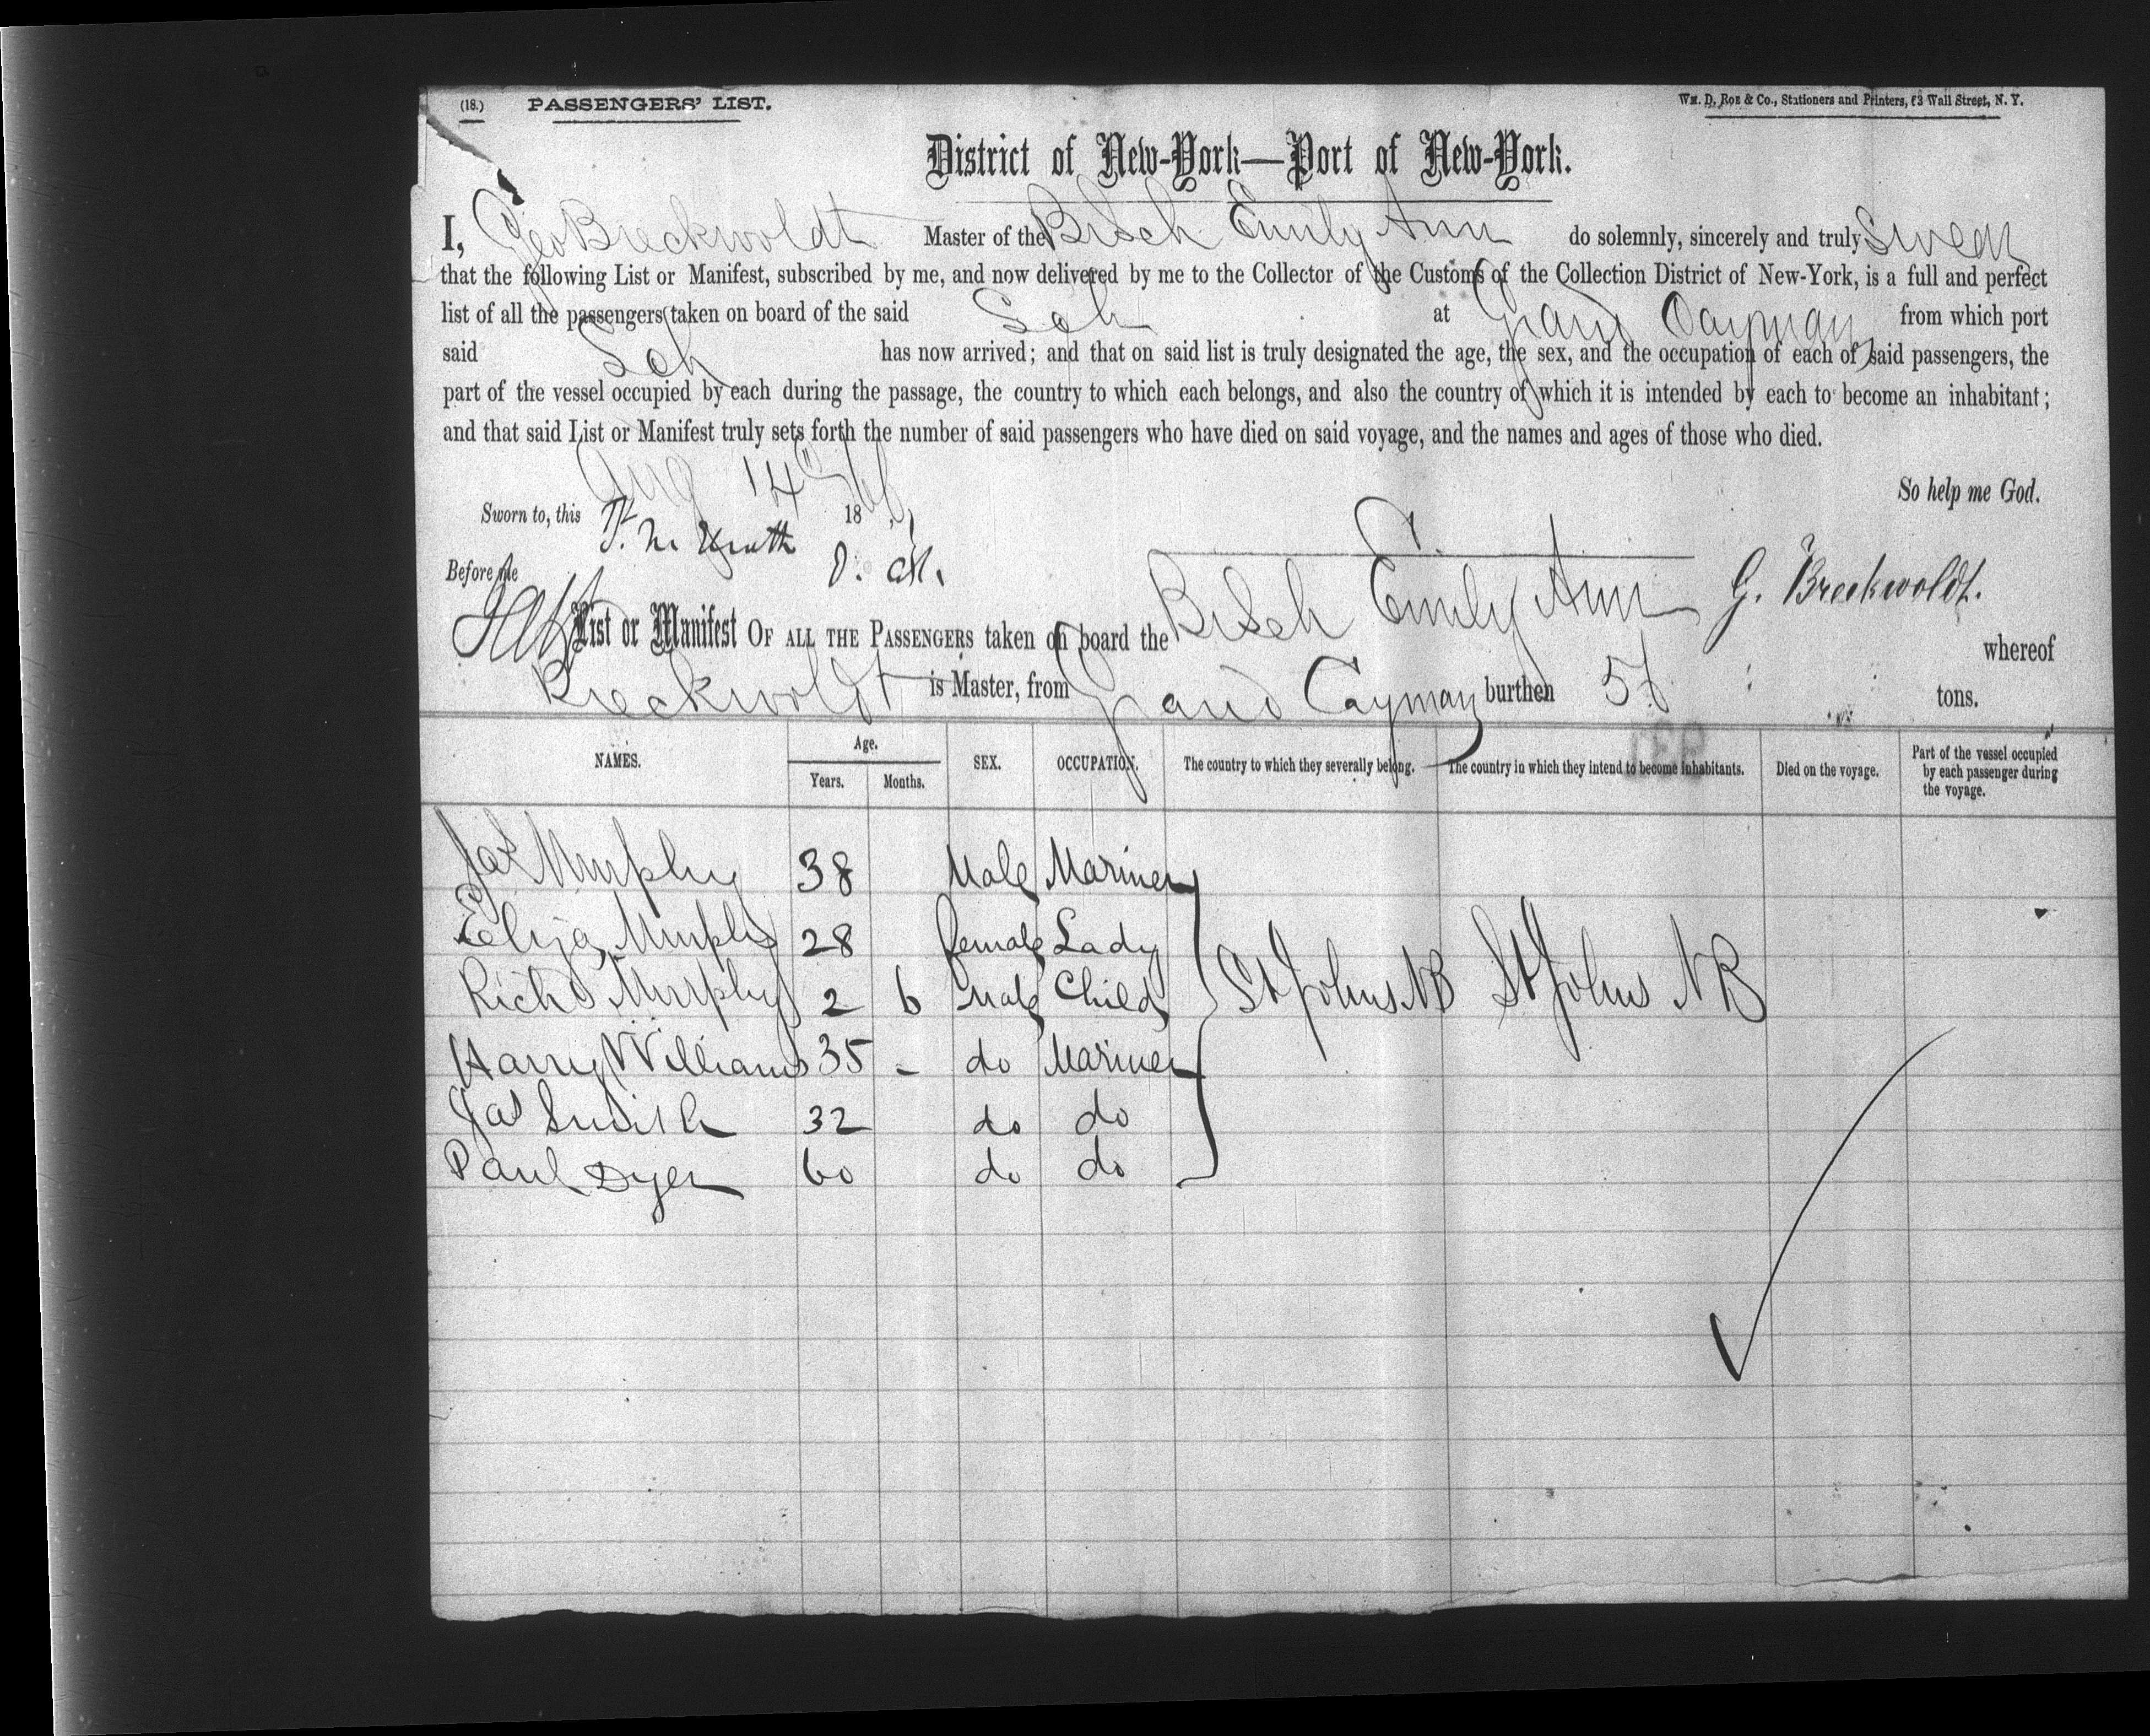 (18.) PASSENGERS' LIST. Wm. D. Roe & Co., Stationers and Printers, 63 Wall Street, N. Y.
District of New-York—Port of New-York.
I, Geo Breckwoldt Master of the Br Sch Emily Ann do solemnly, sincerely and truly swear
that the following List or Manifest, subscribed by me, and now delivered by me to the Collector of the Customs of the Collection District of New-York, is a full and perfect
list of all the passengers taken on board of the said Sch at Grand Cayman from which port
said Sch has now arrived; and that on said list is truly designated the age, the sex, and the occupation of each of said passengers, the
part of the vessel occupied by each during the passage, the country to which each belongs, and also the country of which it is intended by each to become an inhabitant;
and that said List or Manifest truly sets forth the number of said passengers who have died on said voyage, and the names and ages of those who died.
So help me God.
Sworn to, this Aug 14 18
Before me
G. Breckwoldt.
List or Manifest OF ALL THE PASSENGERS taken on board the Br Sch Emily Ann whereof
Breckwoldt is Master, from Grand Cayman burthen tons.
NAMES. Age. Years. Months. SEX. OCCUPATION. The country to which they severally belong. The country in which they intend to become inhabitants. Died on the voyage. Part of the vessel occupied by each passenger during the voyage.
Jas Murphy 38 Male Mariner
Eliza Murphy 28 female Lady
Richd Murphy 2 6 Male Child St Johns NB St Johns NB
Harry Williams 35 - do Mariner
Jas Smith 32 do do
Paul Dyer 60 do do